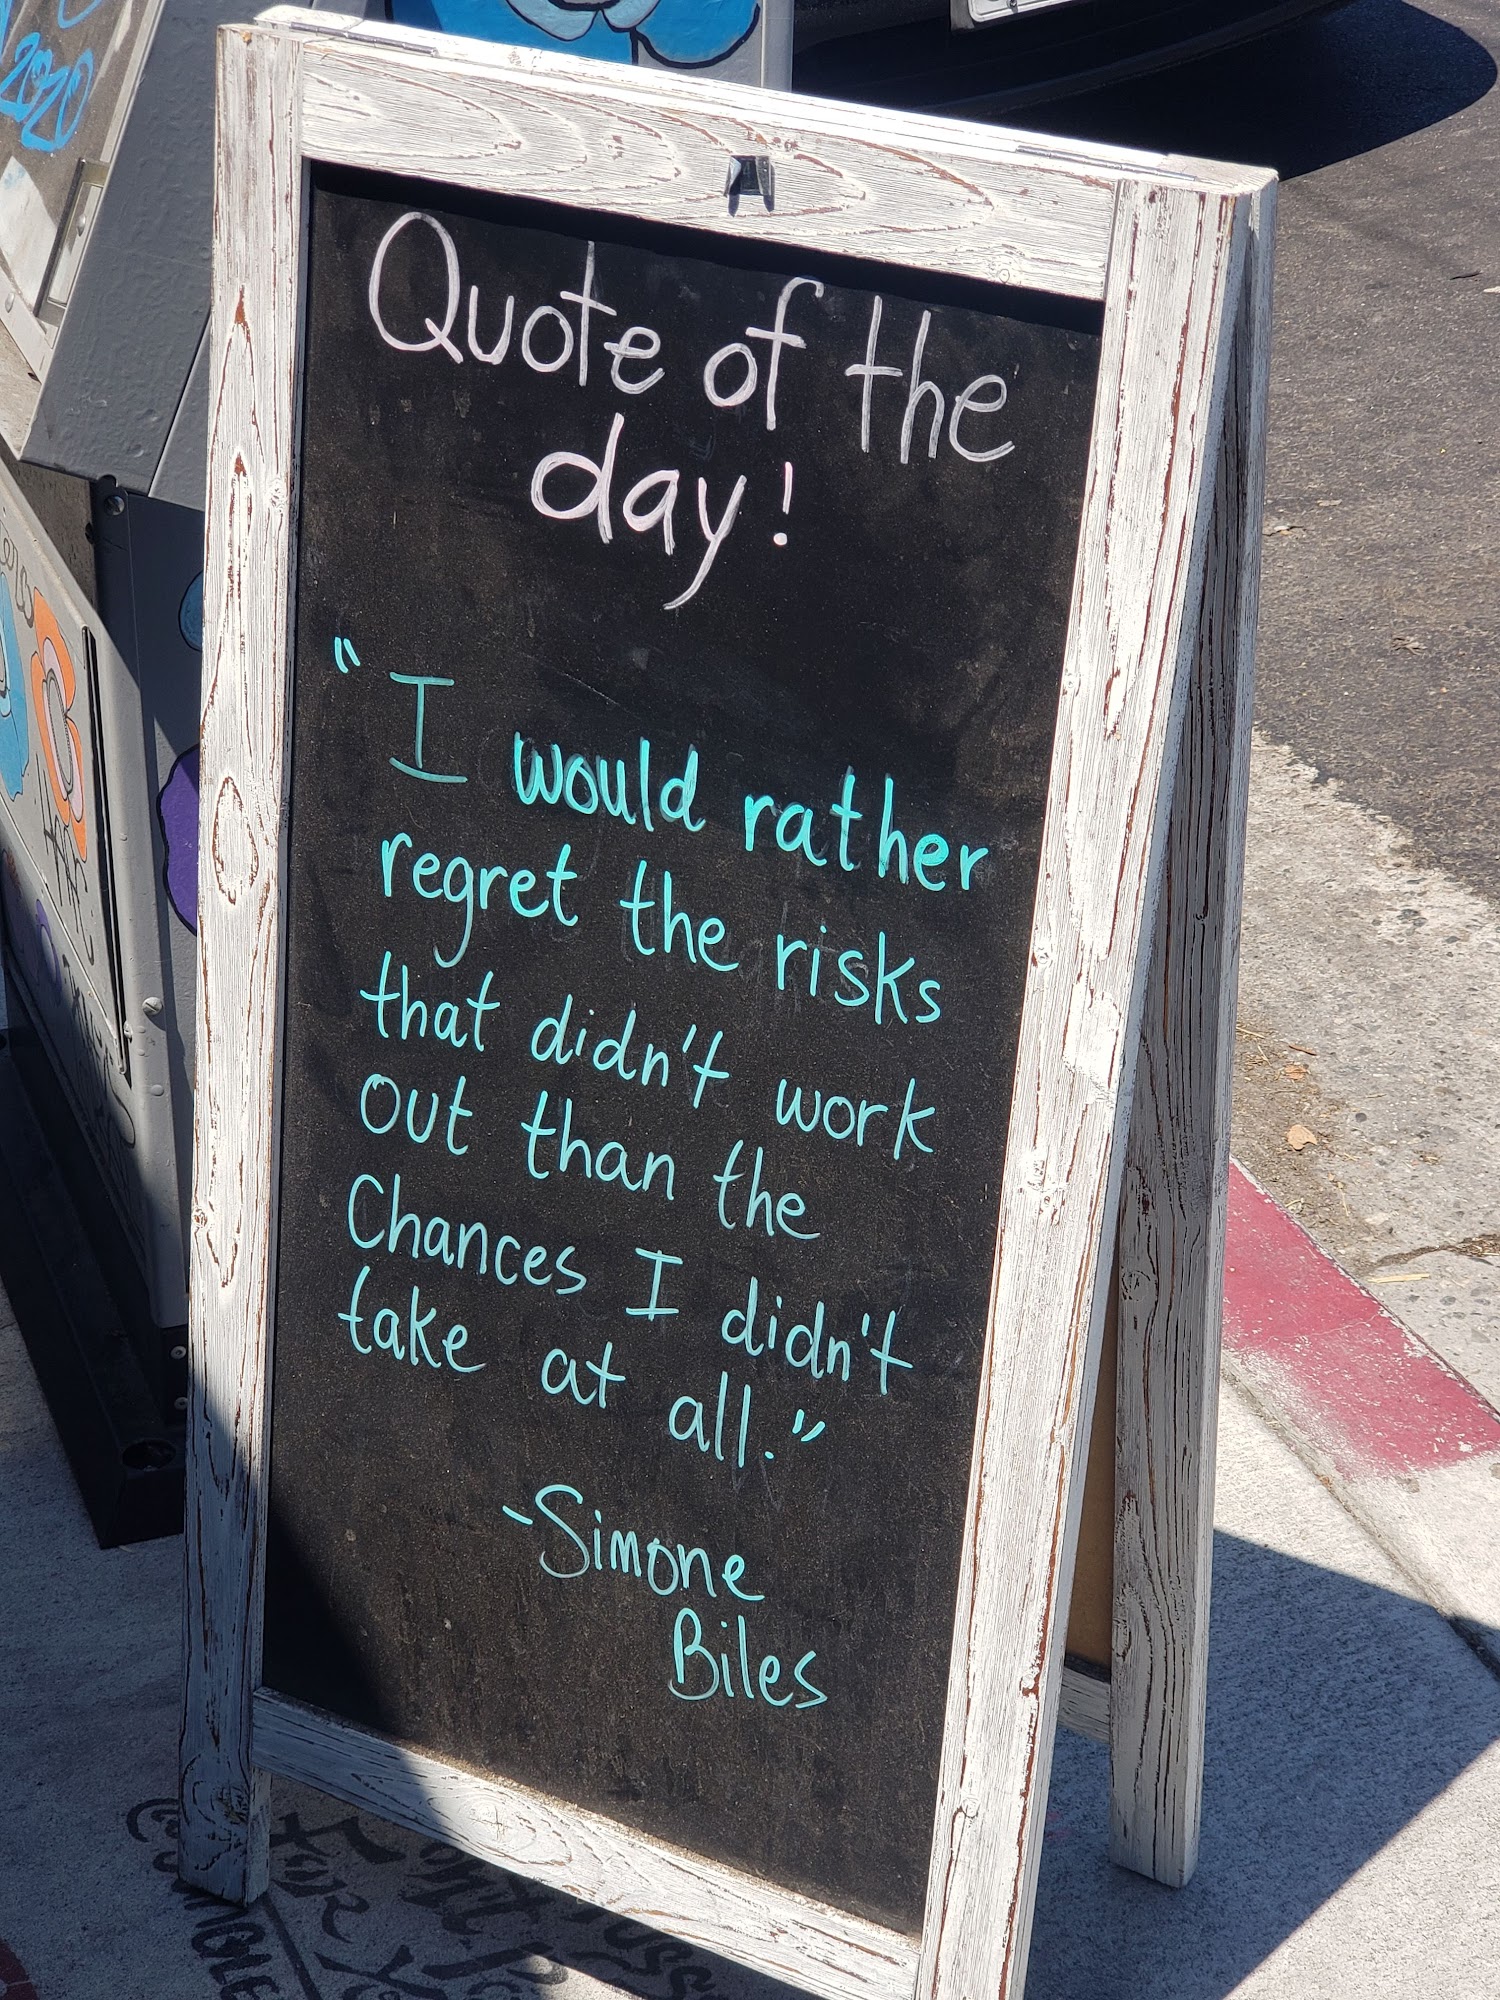 2020
Quote of the
day!
"I would rather
regret the risks
that didn't work
out than the
Chances I didn't
take at all."
-Simone
Biles